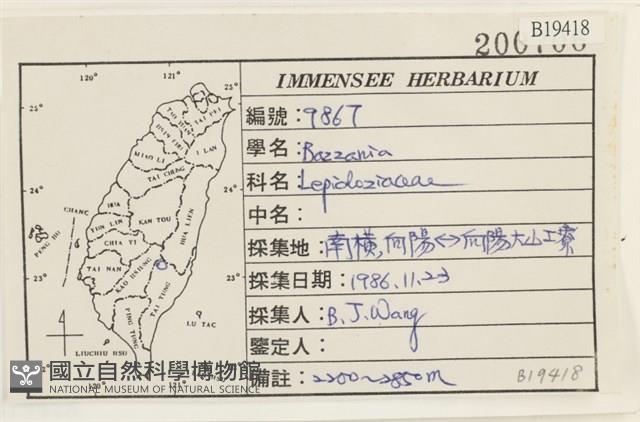 B19418
IMMENSEE HERBARIUM
編號：9867
學名：Bazzania
科名：Lepidoziaceae
中名：
採集地：南橫，向陽↔向陽大山工寮
採集日期：1986.11.23
採集人：B.J.Wang
鑒定人：
備註：2200~2850m
B19418
120°
121°
25°
25°
TAI PEI
I LAN
MIAO LI
TAI CHUNG
24°
24°
HUA LIEN
CHANG
HUA
YUN LIN
NAN TOU
PENG HU
CHIA YI
TAI NAN
KAO HSIUNG
23°
23°
TAI TUNG
PING TUNG
LU TAO
LIUCHIU HSU
120°
121°
國立自然科學博物館
NATIONAL MUSEUM OF NATURAL SCIENCE